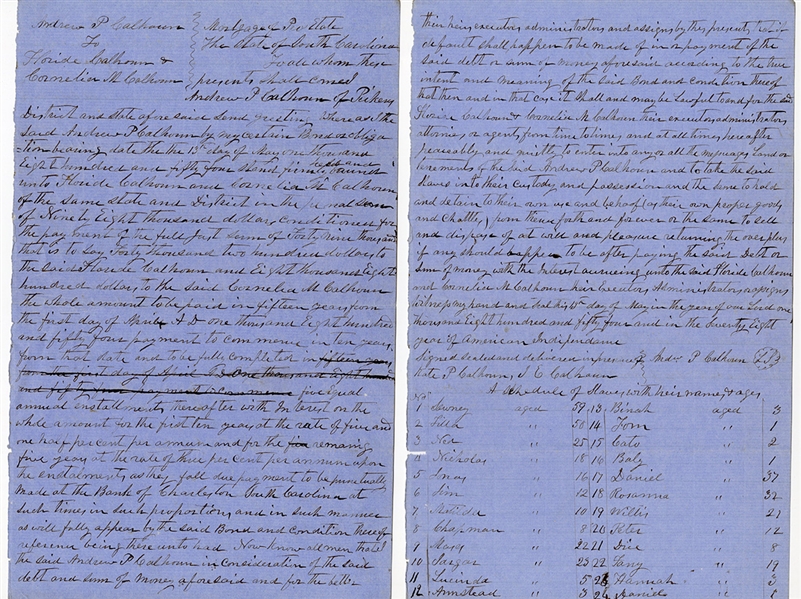 Andrew P Calhoun
To
Floride Calhoun &
Cornelia M Calhoun
Mortgage P. state
The State of South Carolina
To all whom these
presents shall come I
Andrew P Calhoun of Pickens
District and State aforesaid send greeting Whereas I the
said Andrew P Calhoun by my certain Bond or obliga
tion bearing date the the 15th day of May one thousand
Eight hundred and fifty four stand firmly held and bound
unto Floride Calhoun and Cornelia M Calhoun
of the same State and District in the penal sum
of Ninety Eight thousand dollars conditioned for
the payment of the full just sum of Forty nine thousand
that is to say Forty thousand two hundred dollars to
the said Floride Calhoun and Eight thousand Eight
hundred dollars to the said Cornelia M Calhoun
the whole amount to be paid in fifteen years from
the first day of April A D one thousand Eight hundred
and fifty four payment to commence in ten years
from that date and to be fully completed in fifteen years
from the first day of April one thousand eight hundred
and fifty four payment to commence five Equal
annual enstallments thereafter with Interest on the
whole amount for the first ten years at the rate of five and
one half per cent per annum and for the five remaining
five years at the rate of three per cent per annum upon
the enstalments as they fall due payment to be punctually
made at the Bank of Charleston South Carolina at
such times in such proportions and in such manner
as will fully appear by the said Bond and Condition thereof
reference being thereunto had Now know all men that I
the said Andrew P Calhoun in Consideration of the said
debt and sum of money aforesaid and for the better
their heirs executors administrators and assigns by these presents that if
default shall happen to be made of in or payment of the
said debt or sum of money aforesaid according to the true
intent and meaning of the said Bond and condition thereof
that then and in that case it shall and may be lawful to and for the said
Floride Calhoun & Cornelia M Calhoun their executors administrators
attorney or agents from time to time and at all times hereafter
peaceably and quietly to enter into any or all the messuages Land or
tenements of the said Andrew P Calhoun and to take the said
slaves into their custody and possession and the same to hold
and detain to their own use and behoof as their own proper goods
and chattles from thenceforth and forever or the same to sell
and dispose of at will and pleasure returning the overplus
if any should appear to be after paying the said debt or
sum of money with the Interest accrueing unto the said Floride Calhoun
and Cornelia M Calhoun their Executors Administrators assigns
Witness my hand and seal this 15th day of May in the year of our Lord one
thousand Eight hundred and fifty four and in the Seventy Eight
year of American Independence
Signed sealed and delivered in presence of Andw P Calhoun L.S.
Kate P Calhoun, J C Calhoun
A Schedule of Slaves with their names & ages
No
1 Sawney aged 59 13 Binah aged 3
2 50 14 Tom " 1
3 Ned " 25 15 Cato " 2
4 Nicholas " 18 16 Baly " 1
5 Jonas " 16 17 Daniel " 37
6 Jim " 12 18 Rosanna " 32
7 Matilda " 10 19 Willis " 21
8 Chapman " 8 20 Peter " 12
9 " 22 21 " 8
10 " 25 22 " 19
11 Lucinda " 5 Hannah " 3
12 Armstead " 3 Daniel "